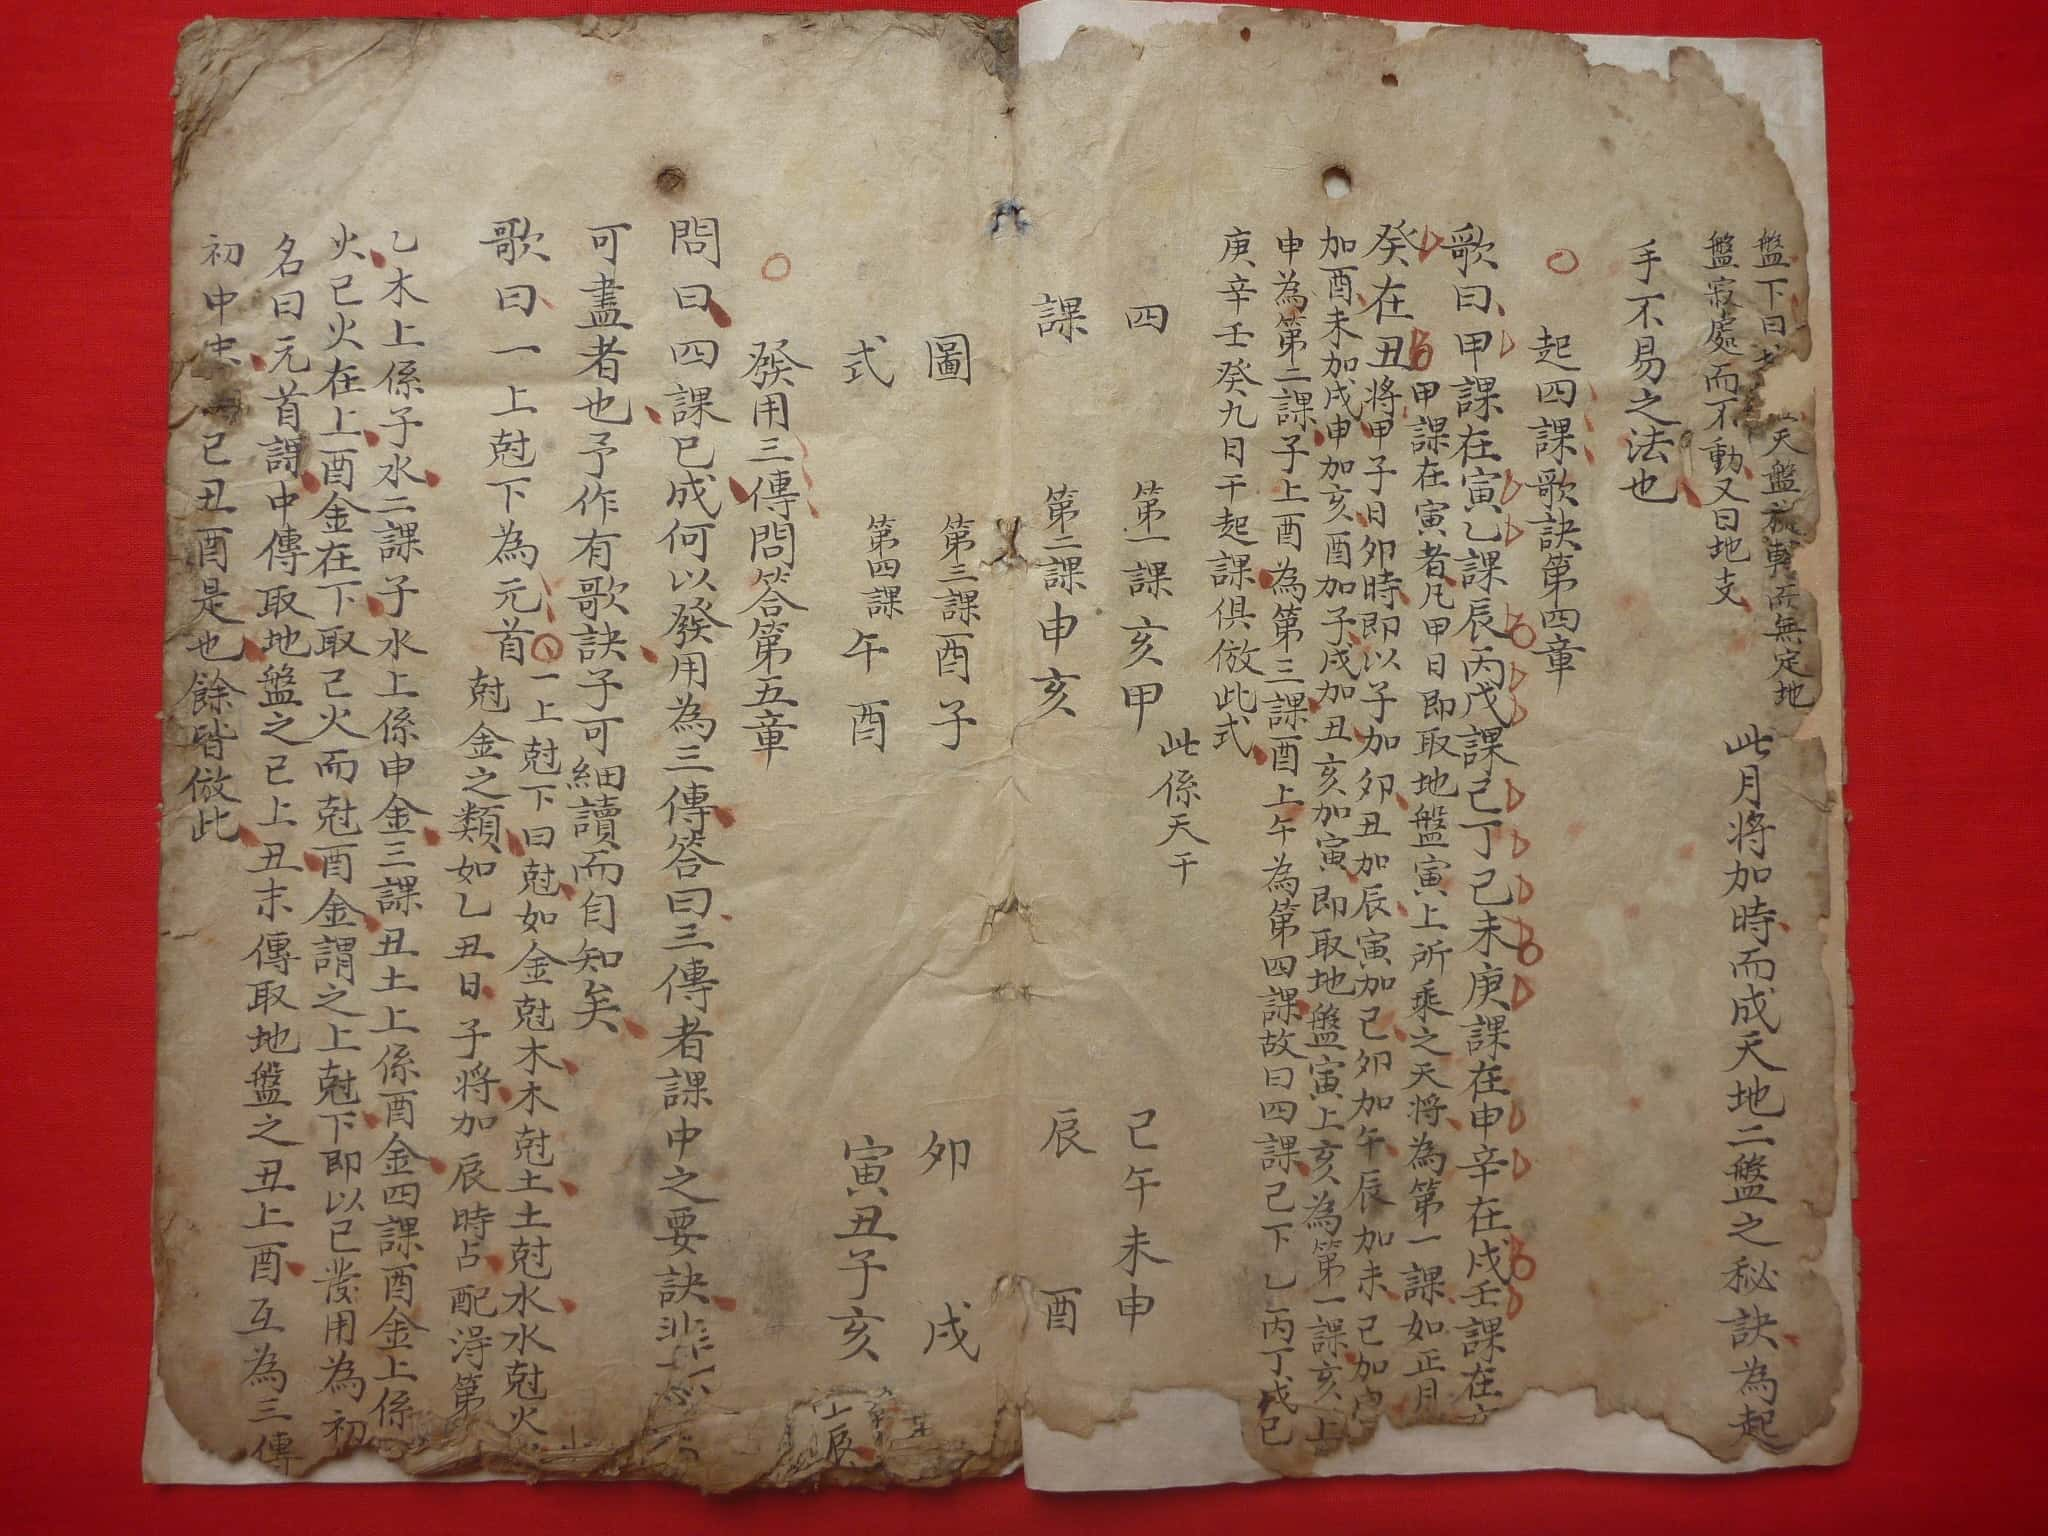 盤下曰 天盤旋轉而無定地
盤寂處而不動又曰地支
此月將加時而成天地二盤之秘訣為起
手不易之法也
○ 起四課歌訣第四章
歌曰甲課在寅乙課辰丙戊課己丁己未庚課在申辛在戌壬課在
癸在丑
甲課在寅者凡甲日即取地盤寅上所乘之天將為第一課如正月
將甲子日卯時即以子加卯丑加辰寅加己卯加午辰加未己加
加酉未加戌申加亥酉加子戌加丑亥加寅即取地盤寅上亥為第一課亥上
申為第二課子上酉為第三課酉上午為第四課故曰四課己下乙丙丁戊己
庚辛壬癸九日干起課俱倣此式
四 第一課亥甲 此係天干 己午未申
課 第二課申亥 辰 酉
圖 第三課酉子 卯 戌
式 第四課午酉 寅丑子亥
○ 發用三傳問答第五章
問曰四課已成何以發用為三傳答曰三傳者課中之要訣非
可盡者也予作有歌訣子可細讀而自知矣
歌曰一上尅下為元首○
一上尅下曰尅如金尅木木尅土土尅水水尅火
尅金之類如乙丑日子將加辰時占配得第
乙木上係子水二課子水上係申金三課丑土上係酉金四課酉金上係
火己火在上酉金在下取己火而尅酉金謂之上尅下即以己發用為初
名曰元首課中傳取地盤之己上丑末傳取地盤之丑上酉互為三傳
初中末 己丑酉是也餘皆倣此